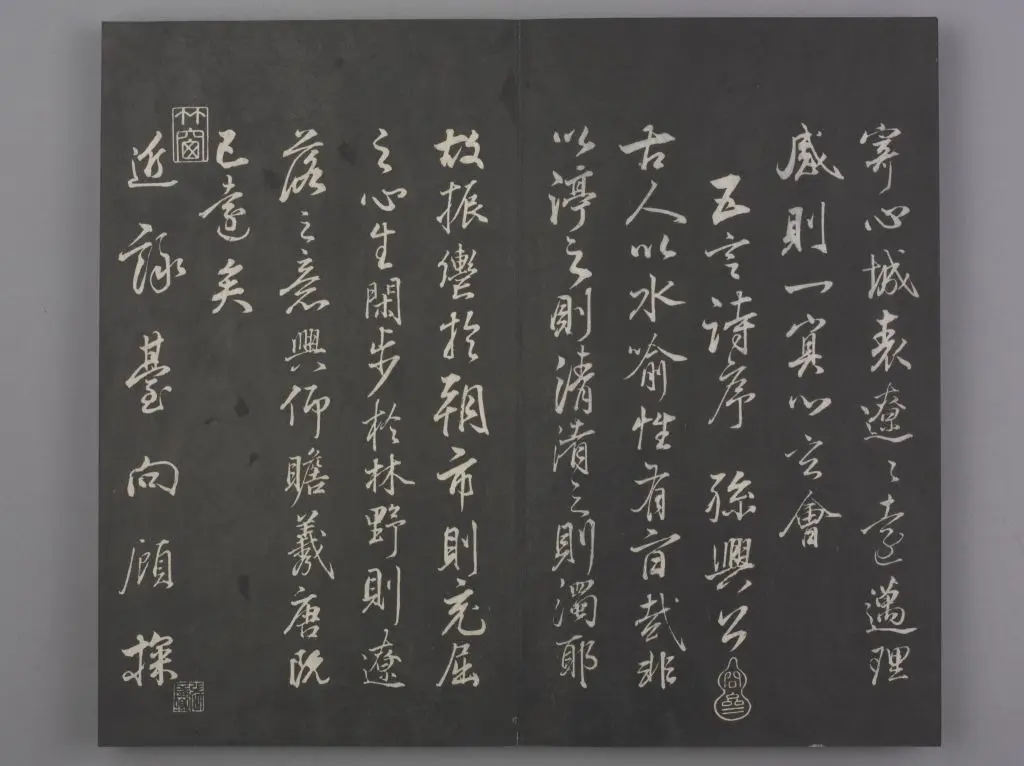 寄心域表遼々遠邁理
感則一冥然玄會
五言詩序 孫興公
古人以水喻性有旨哉非
以渟之則清淆之則濁耶
故振轡於朝市則充屈
之心生閑步於林野則遼
落之意興仰瞻羲唐既
已遠矣
竹窗
近詠臺閣顧探